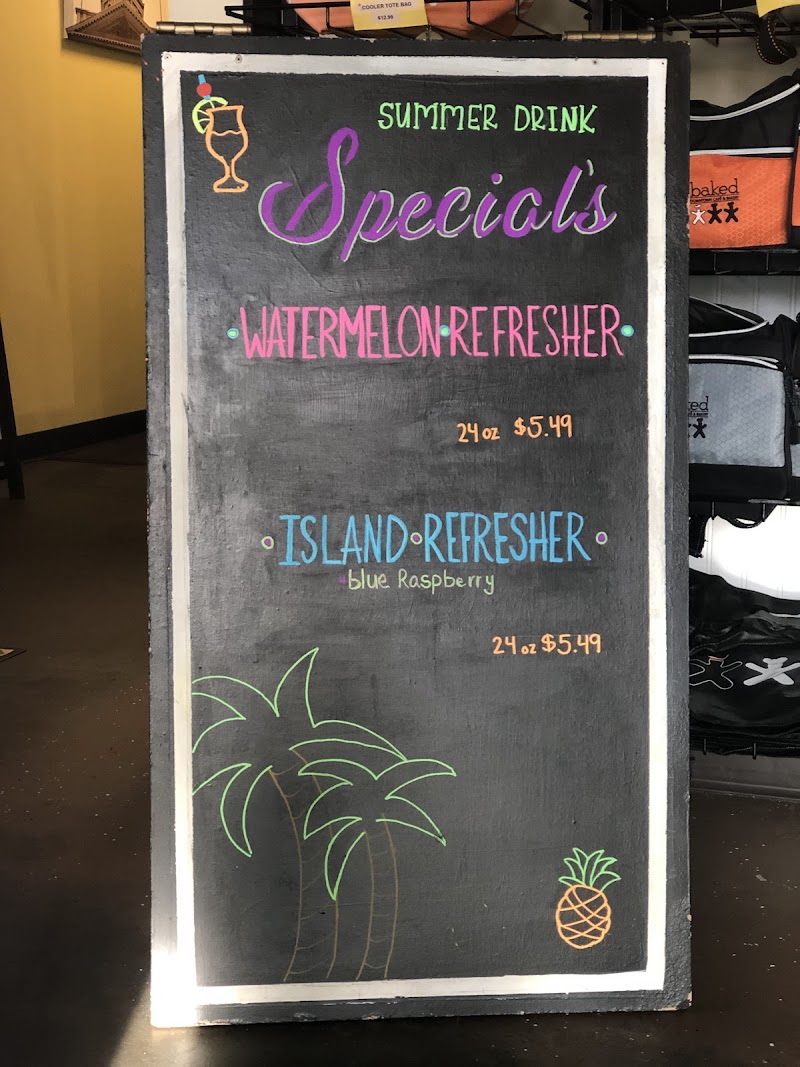 COOLER TOTE BAG
$12.99
SUMMER DRINK
Special's
•WATERMELON•REFRESHER•
24 oz $5.49
•ISLAND•REFRESHER•
blue Raspberry
24 oz $5.49
baked